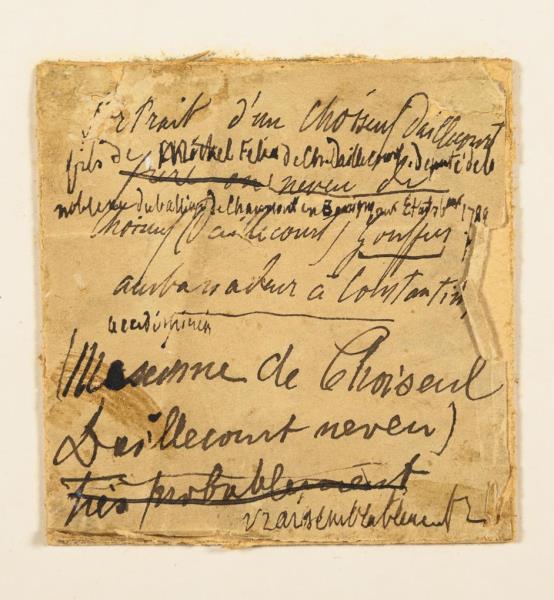 Portrait d'un Choiseul Daillecourt
fils de Michel Felix de Ch. Daillecourt, député de la
frère ou neveu du
noblesse du bailliage de Chaumont en Bassigny aux Etats Gx 1789
Choiseul (Daillecourt) Gouffier,
ambassadeur à Constantin,
académicien
(Maxime de Choiseul
Daillecourt neveu)
très probablement
vraisemblablement